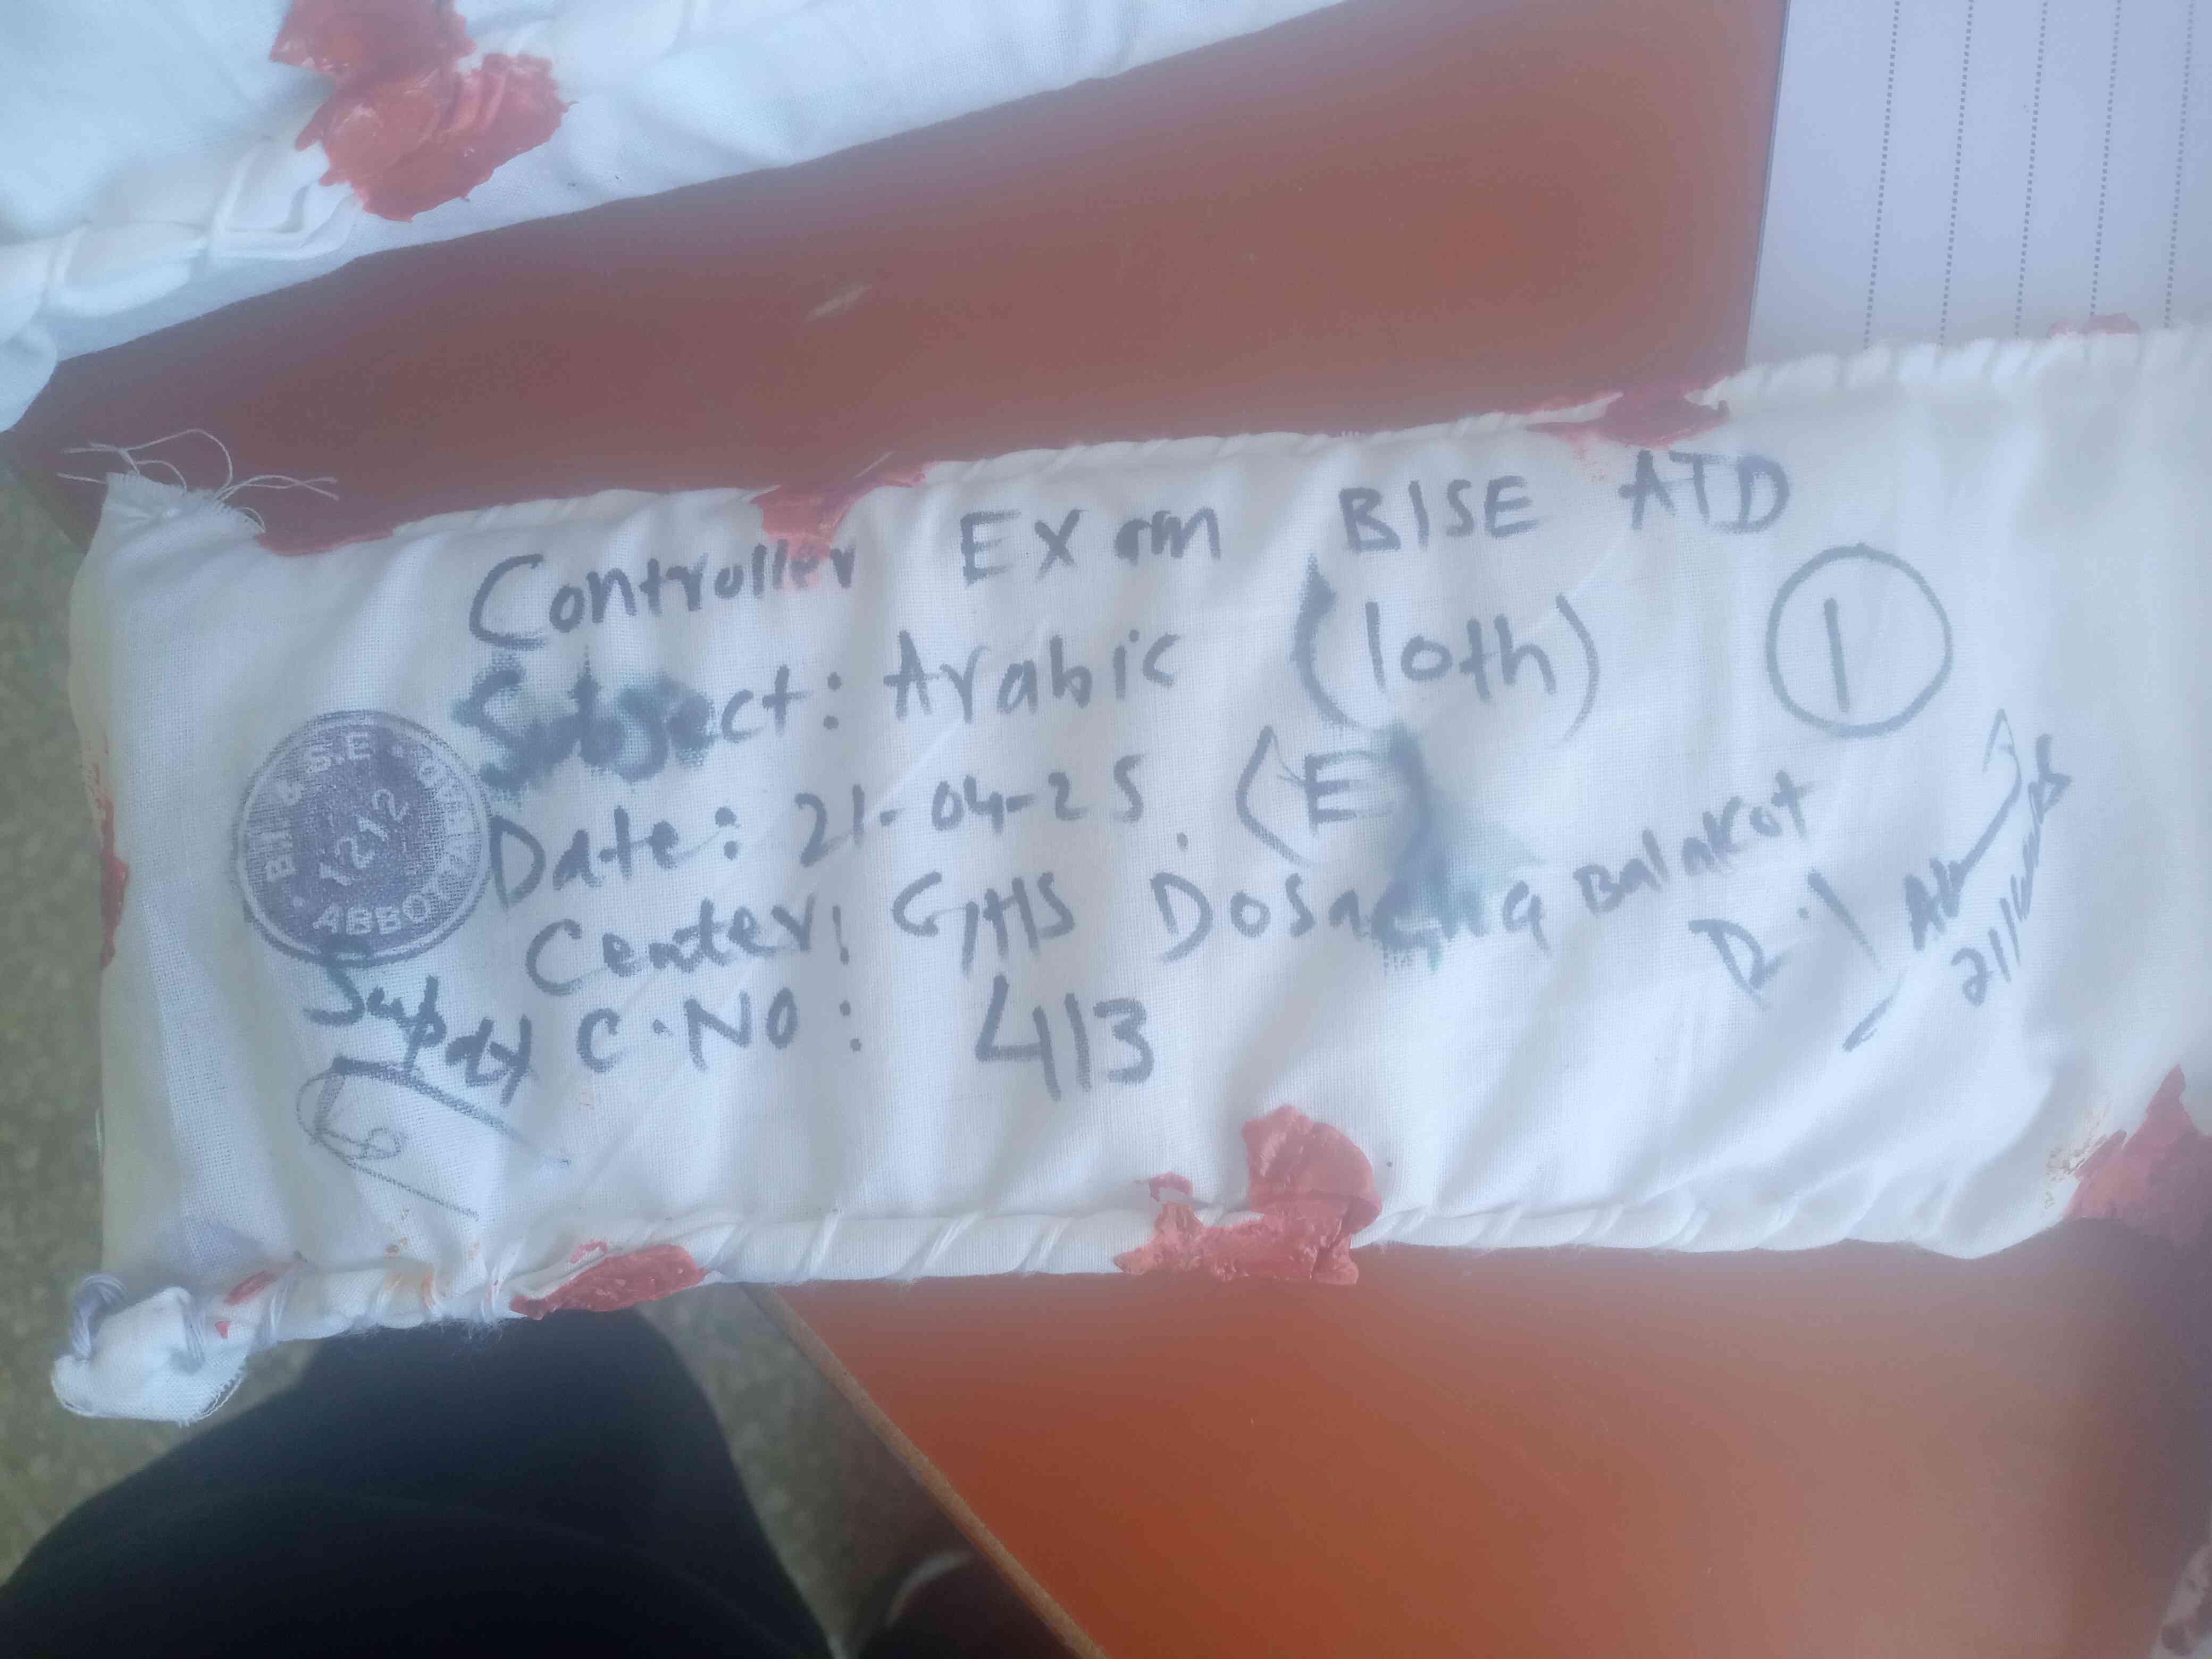 Controller Exam BISE ATD
Subject: Arabic (10th)
1
Date: 21-04-25. (E)
Center: GHS Balakot
C.NO: 413
Supdt
B.I & S.E
ABBOTTABAD
1212
ABBOTTABAD